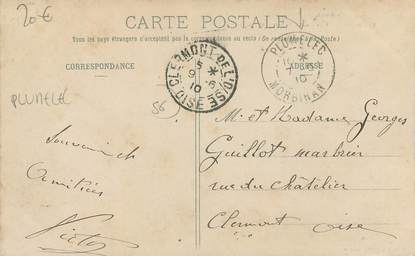 20€
CARTE POSTALE
Tous les pays étrangers n'acceptent pas la correspondance au recto (Se renseigner à la Poste)
CORRESPONDANCE
ADRESSE
CLERMONT DE L'OISE
9 -6
10
OISE
MORBIHAN
10
PLUMELEC
56)
Souvenir et
Amitiés
Victor
M. et Madame Georges
Guillot marbrier
rue du Châtelier
Clermont Oise